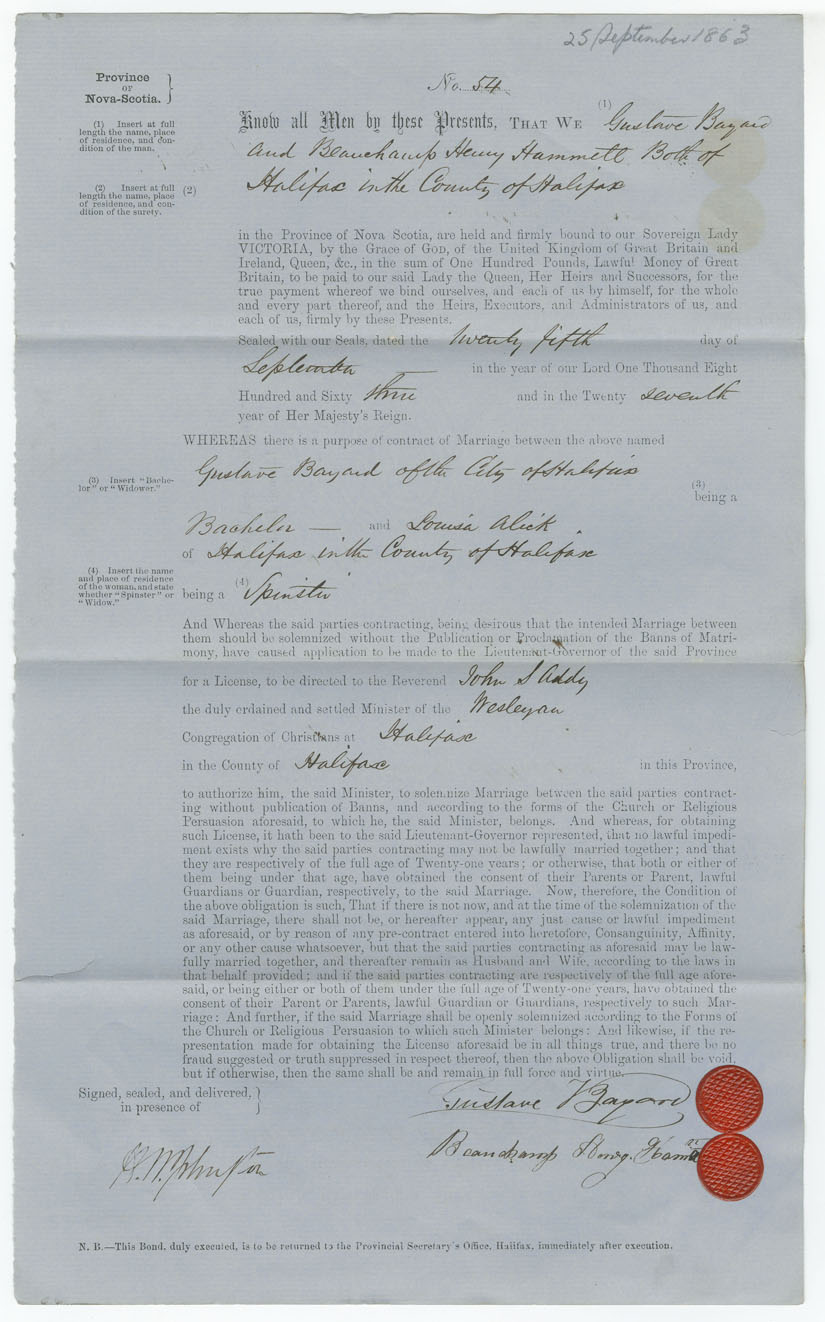 25 September 1863
Province
OF
Nova-Scotia.
No. 54
(1) Insert at full
length the name, place
of residence, and con-
dition of the man.
(2) Insert at full
length the name, place
of residence, and con-
dition of the surety.
(1)
Know all Men by these Presents, THAT WE Gustave Bayard
and Beauchamp Henry Hammett Both of
(2) Halifax in the County of Halifax
in the Province of Nova Scotia, are held and firmly bound to our Sovereign Lady
VICTORIA, by the Grace of GOD, of the United Kingdom of Great Britain and
Ireland, Queen, &c., in the sum of One Hundred Pounds, Lawful Money of Great
Britain, to be paid to our said Lady the Queen, Her Heirs and Successors, for the
true payment whereof we bind ourselves, and each of us by himself, for the whole
and every part thereof, and the Heirs, Executors, and Administrators of us, and
each of us, firmly by these Presents.
Sealed with our Seals, dated the twenty fifth day of
September in the year of our Lord One Thousand Eight
Hundred and Sixty three and in the Twenty seventh
year of Her Majesty's Reign.
WHEREAS there is a purpose of contract of Marriage between the above named
Gustave Bayard of the City of Halifax
(3) Insert "Bache-
lor" or "Widower."
(3)
being a
Bachelor — and Louisa Alick
of Halifax in the County of Halifax
(4) Insert the name
and place of residence
of the woman, and state
whether "Spinster" or
"Widow."
being a (4) Spinster
And Whereas the said parties contracting, being desirous that the intended Marriage between
them should be solemnized without the Publication or Proclamation of the Banns of Matri-
mony, have caused application to be made to the Lieutenant-Governor of the said Province
for a License, to be directed to the Reverend John S Addy
the duly ordained and settled Minister of the Wesleyan
Congregation of Christians at Halifax
in the County of Halifax in this Province,
to authorize him, the said Minister, to solemnize Marriage between the said parties contract-
ing without publication of Banns, and according to the forms of the Church or Religious
Persuasion aforesaid, to which he, the said Minister, belongs. And whereas, for obtaining
such License, it hath been to the said Lieutenant-Governor represented, that no lawful impedi-
ment exists why the said parties contracting may not be lawfully married together; and that
they are respectively of the full age of Twenty-one years; or otherwise, that both or either of
them being under that age, have obtained the consent of their Parents or Parent, lawful
Guardians or Guardian, respectively, to the said Marriage. Now, therefore, the Condition of
the above obligation is such, That if there is not now, and at the time of the solemnization of the
said Marriage, there shall not be, or hereafter appear, any just cause or lawful impediment
as aforesaid, or by reason of any pre-contract entered into heretofore, Consanguinity, Affinity,
or any other cause whatsoever, but that the said parties contracting as aforesaid may be law-
fully married together, and thereafter remain as Husband and Wife, according to the laws in
that behalf provided; and if the said parties contracting are respectively of the full age afore-
said, or being either or both of them under the full age of Twenty-one years, have obtained the
consent of their Parent or Parents, lawful Guardian or Guardians, respectively to such Mar-
riage: And further, if the said Marriage shall be openly solemnized according to the Forms of
the Church or Religious Persuasion to which such Minister belongs: And likewise, if the re-
presentation made for obtaining the License aforesaid be in all things true, and there be no
fraud suggested or truth suppressed in respect thereof, then the above Obligation shall be void,
but if otherwise, then the same shall be and remain in full force and virtue.
Signed, sealed, and delivered,
in presence of
Gustave Bayard
Beauchamp Henry
H. W. Johnston
N. B.—This Bond, duly executed, is to be returned to the Provincial Secretary's Office, Halifax, immediately after execution.